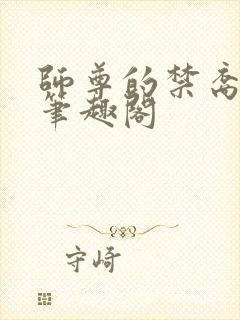 師尊的禁脔
筆趣閣
守崎